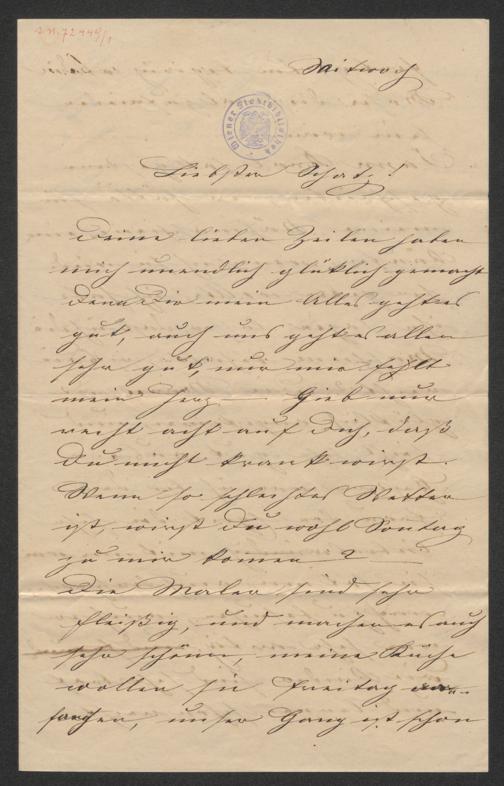 J.N. 72449/1
Mittwoch
Wiener Stadtbibliothek
Liebster Schatz!
Deine lieben Zeilen haben
mich unendlich glüklich gemacht
denn Dir mein Alles geht es
gut, auch uns geht es allen
sehr gut, nur mir fehlt
mein Herz — Gieb nur
recht acht auf Dich, daß
Du nicht krank wirst.
Wenn so schlechtes Wetter
ist, wirst Du wohl Sontag
zu mir komen? —
Die Maler sind sehr
fleißig, und machen es auch
sehr schön, meine Küche
wollen sie Freitag an-
fangen, unser Gang ist schon